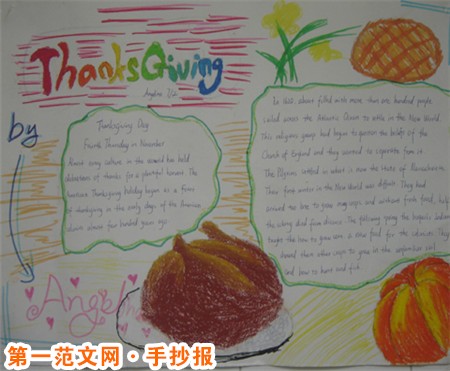 ThanksGiving
by
Angelina
Thanksgiving Day
Fourth Thursday in November
Almost every culture in the world has held
celebrations of thanks for a plentiful harvest. The
American Thanksgiving holiday began as a feast
of thanksgiving in the early days of the American
almost four hundred years ago.
In 1620, a boat filled with more than one hundred people
sailed across the Atlantic Ocean to settle in the New World.
This religious group had begun to question the beliefs of the
Church of England and they wanted to separate from it.
The Pilgrims settled in what is now the state of Massachusetts.
Their first winter in the New World was difficult. They had
arrived too late to grow many crops, and without fresh food, half
the colony died from disease. The following spring the Iroquois Indians
taught them how to grow corn, a new food for the colonists. They
showed them other crops to grow in the unfamiliar soil
and how to hunt and fish.
第一范文网·手抄报